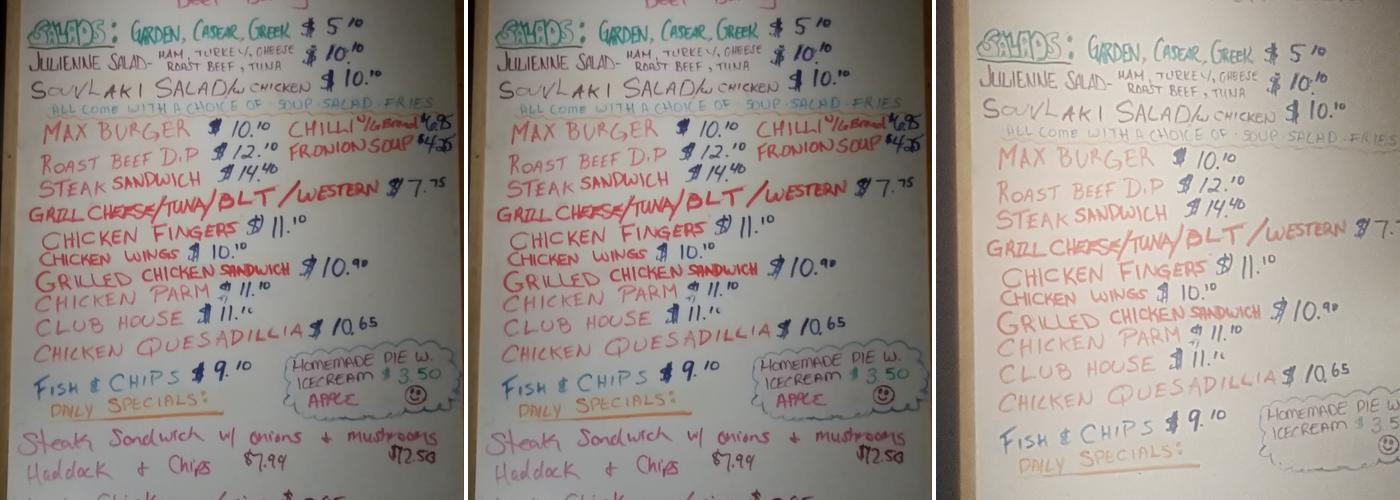 SALADS: GARDEN, CASEAR, GREEK $5.10
JULIENNE SALAD- HAM, TURKEY, CHEESE $10.10
ROAST BEEF, TUNA
SOUVLAKI SALAD/w CHICKEN $10.10
ALL COME WITH A CHOICE OF - SOUP - SALAD - FRIES
MAX BURGER $10.10 CHILLI W/G Bread $6.95
ROAST BEEF D.P $12.10 FRONION SOUP
STEAK SANDWICH $14.40
GRILL CHEESE/TUNA/BLT/WESTERN $7.75
CHICKEN FINGERS $11.10
CHICKEN WINGS $10.10
GRILLED CHICKEN SANDWICH $10.90
CHICKEN PARM $11.10
CLUB HOUSE $11.10
CHICKEN QUESADILLIA $10.65
FISH & CHIPS $9.10
HOMEMADE PIE W.
ICECREAM $3.50
APPLE
DAILY SPECIALS:
Steak Sandwich w/ onions + mushrooms
$12.50
Haddock & Chips $7.99
SALADS: GARDEN, CASEAR, GREEK $5.10
JULIENNE SALAD- HAM, TURKEY, CHEESE $10.10
ROAST BEEF, TUNA
SOUVLAKI SALAD/w CHICKEN $10.10
ALL COME WITH A CHOICE OF - SOUP - SALAD - FRIES
MAX BURGER $10.10 CHILLI W/G Bread $6.95
ROAST BEEF D.P $12.10 FRONION SOUP
STEAK SANDWICH $14.40
GRILL CHEESE/TUNA/BLT/WESTERN $7.75
CHICKEN FINGERS $11.10
CHICKEN WINGS $10.10
GRILLED CHICKEN SANDWICH $10.90
CHICKEN PARM $11.10
CLUB HOUSE $11.10
CHICKEN QUESADILLIA $10.65
FISH & CHIPS $9.10
HOMEMADE PIE W.
ICECREAM $3.50
APPLE
DAILY SPECIALS:
Steak Sandwich w/ onions + mushrooms
$12.50
Haddock & Chips $7.99
SALADS: GARDEN, CASEAR, GREEK $5.10
JULIENNE SALAD- HAM, TURKEY, CHEESE $10.10
ROAST BEEF, TUNA
SOUVLAKI SALAD/w CHICKEN $10.10
ALL COME WITH A CHOICE OF - SOUP - SALAD - FRIES
MAX BURGER $10.10
ROAST BEEF D.P $12.10
STEAK SANDWICH $14.40
GRILL CHEESE/TUNA/BLT/WESTERN $7.
CHICKEN FINGERS $11.10
CHICKEN WINGS $10.10
GRILLED CHICKEN SANDWICH $10.90
CHICKEN PARM $11.10
CLUB HOUSE $11.10
CHICKEN QUESADILLIA $10.65
FISH & CHIPS $9.10
HOMEMADE PIE W
ICECREAM $3.5
DAILY SPECIALS: